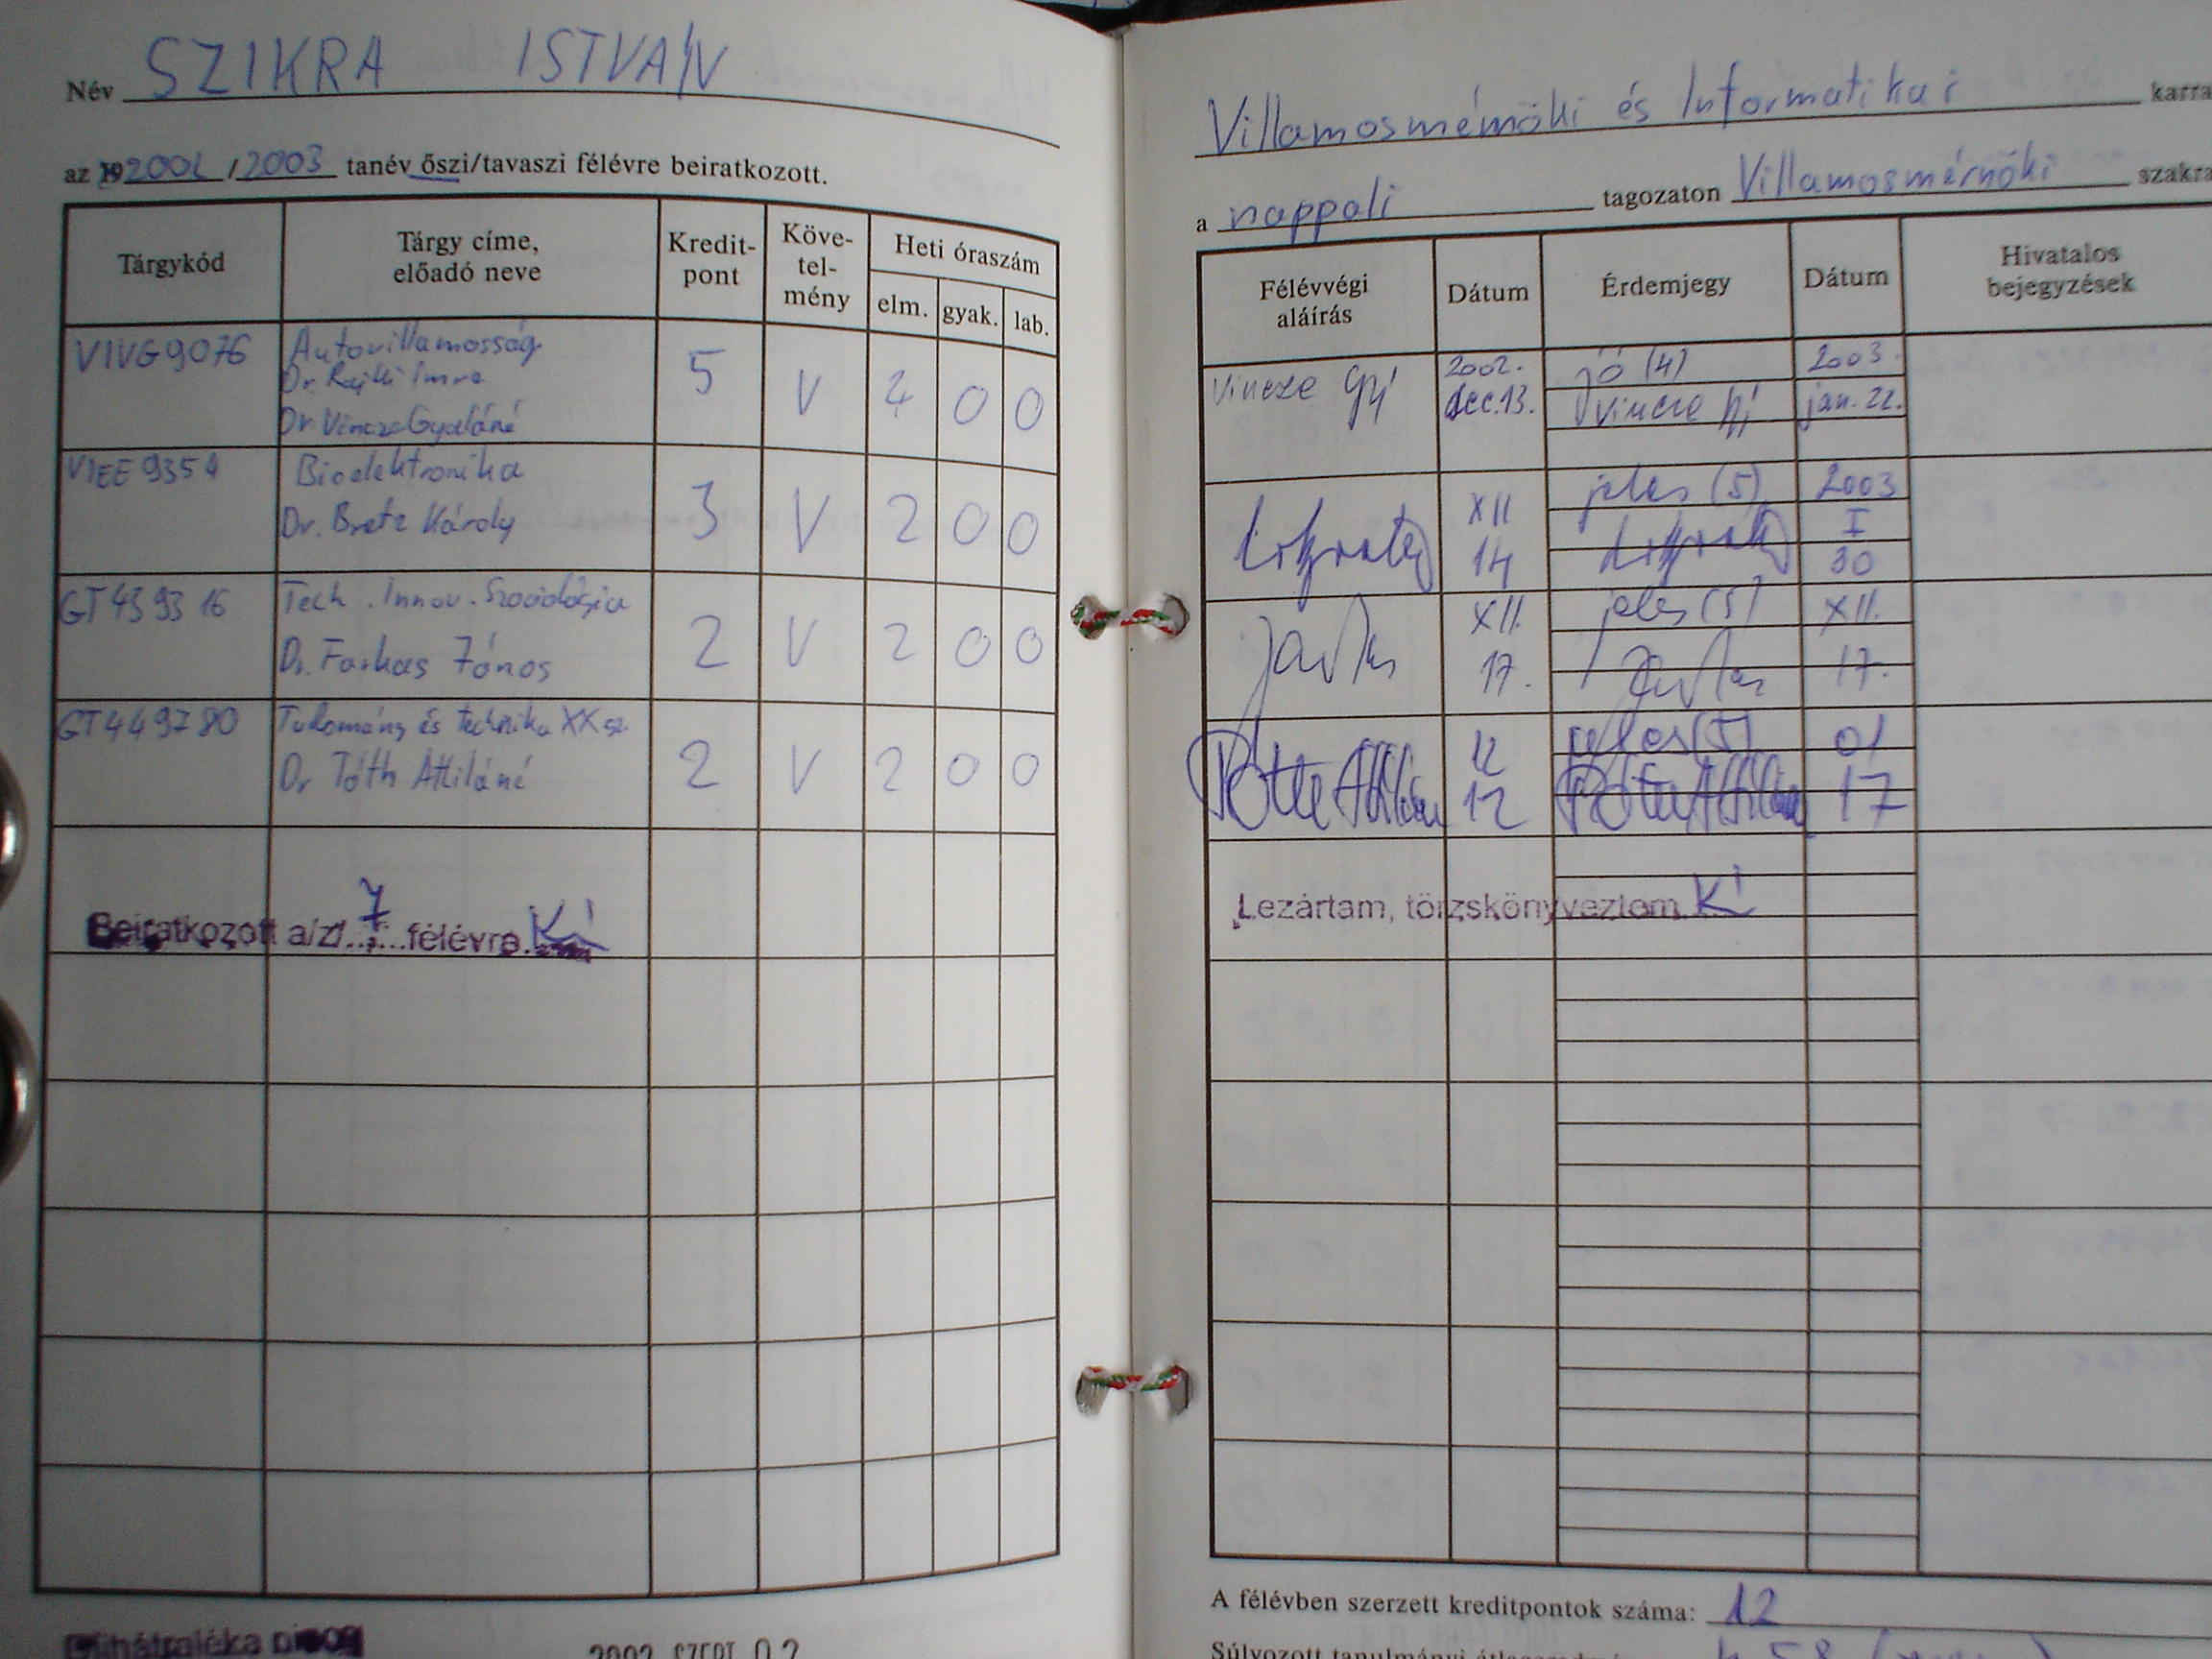 Név SZIKRA ISTVAN
az 19 2002 / 2003 tanév őszi/tavaszi félévre beiratkozott.
Tárgykód
Tárgy címe,
előadó neve
Kredit-
pont
Köve-
tel-
mény
Heti óraszám
elm. gyak. lab.
VIVG9076
Autovillamosság
Dr. Rajki Imre
Dr. Vincze Gyuláné
5 V 4 0 0
VIEE9354
Bioelektronika
Dr. Bretz Károly
3 V 2 0 0
GT439316
Tech. Innov. Szociológia
Dr. Farkas János
2 V 2 0 0
GT449780
Tudomány és technika XX sz.
Dr Tóth Attiláné
2 V 2 0 0
Beiratkozott a/z/..7...félévre.
2002 SZEPT 02
Villamosmérnöki és Informatikai karra
a nappali tagozaton Villamosmérnöki szakra
Félévvégi
aláírás
Dátum
Érdemjegy
Dátum
Hivatalos
bejegyzések
Vincze Gyí
2002.
dec.13.
jó (4)
Vincze
2003.
jan. 22.
XII
14
jeles (5)
2003
I
30
XII.
17.
jeles (5)
XII.
17.
12
12
jeles (5)
01
17
Lezártam, törzskönyveztem
A félévben szerzett kreditpontok száma: 12
Súlyozott tanulmányi